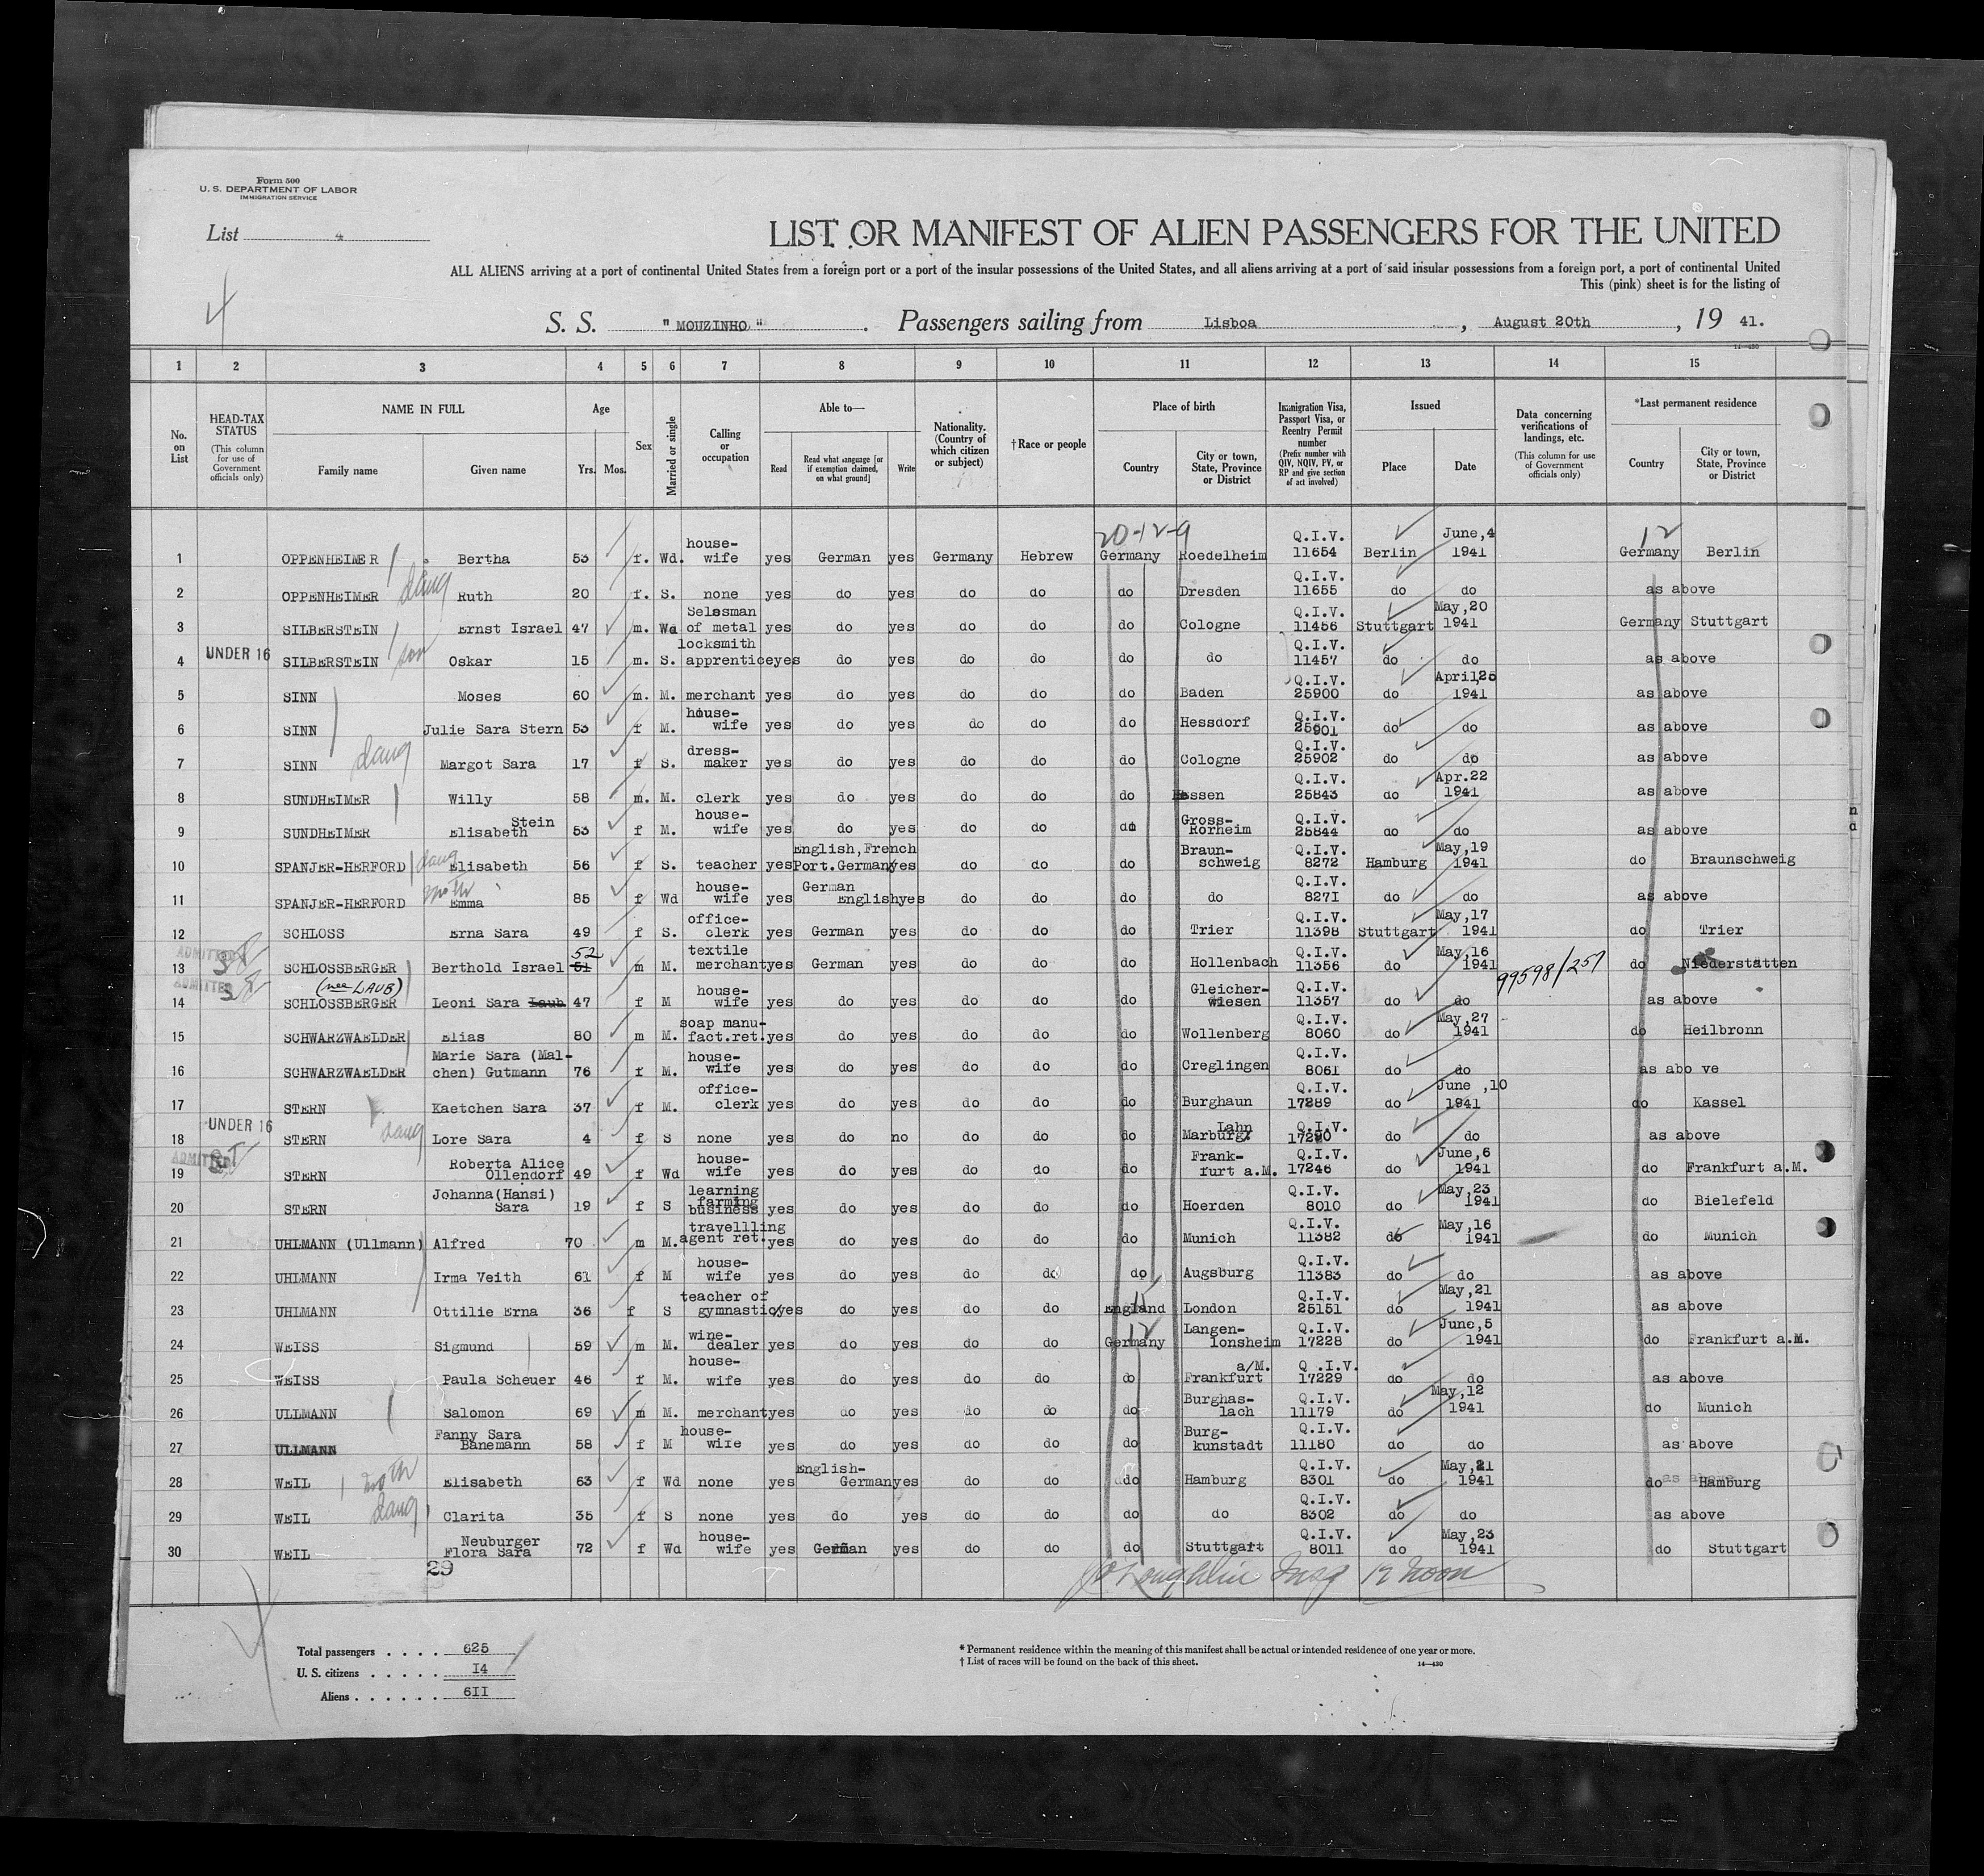 Form 500
U. S. DEPARTMENT OF LABOR
IMMIGRATION SERVICE
List 4
LIST OR MANIFEST OF ALIEN PASSENGERS FOR THE UNITED
ALL ALIENS arriving at a port of continental United States from a foreign port or a port of the insular possessions of the United States, and all aliens arriving at a port of said insular possessions from a foreign port, a port of continental United
This (pink) sheet is for the listing of
4
S. S. "MOUZINHO". Passengers sailing from Lisboa, August 20th, 19 41.
14—430
1 2 3 4 5 6 7 8 9 10 11 12 13 14 15
No. on List
HEAD-TAX STATUS (This column for use of Government officials only)
NAME IN FULL Family name Given name
Age Yrs. Mos.
Sex
Married or single
Calling or occupation
Able to— Read Read what language [or if exemption claimed, on what ground] Write
Nationality. (Country of which citizen or subject)
†Race or people
Place of birth Country City or town, State, Province or District
Immigration Visa, Passport Visa, or Reentry Permit number (Prefix number with QIV, NQIV, PV, or RP and give section of act involved)
Issued Place Date
Data concerning verifications of landings, etc. (This column for use of Government officials only)
*Last permanent residence Country City or town, State, Province or District
20-12-9 12
1 OPPENHEIMER Bertha 53 f. Wd. house-wife yes German yes Germany Hebrew Germany Roedelheim Q.I.V. 11654 Berlin June,4 1941 Germany Berlin
2 OPPENHEIMER daug Ruth 20 f. S. none yes do yes do do do Dresden Q.I.V. 11655 do do as above
3 SILBERSTEIN Ernst Israel 47 m. Wd Salesman of metal yes do yes do do do Cologne Q.I.V. 11456 Stuttgart May,20 1941 Germany Stuttgart
4 UNDER 16 SILBERSTEIN son Oskar 15 m. S. locksmith apprentice yes do yes do do do do Q.I.V. 11457 do do as above
5 SINN Moses 60 m. M. merchant yes do yes do do do Baden Q.I.V. 25900 do April,25 1941 as above
6 SINN Julie Sara Stern 53 f M. house-wife yes do yes do do do Hessdorf Q.I.V. 25901 do do as above
7 SINN daug Margot Sara 17 f S. dress-maker yes do yes do do do Cologne Q.I.V. 25902 do do as above
8 SUNDHEIMER Willy 58 m. M. clerk yes do yes do do do Hessen Q.I.V. 25843 do Apr.22 1941 as above
9 SUNDHEIMER Elisabeth Stein 53 f M. house-wife yes do yes do do do Gross-Rorheim Q.I.V. 25844 do do as above
10 SPANJER-HERFORD daug Elisabeth 56 f S. teacher yes English,French Port.German yes do do do Braun-schweig Q.I.V. 8272 Hamburg May,19 1941 do Braunschweig
11 SPANJER-HERFORD moth Emma 85 f Wd house-wife yes German English yes do do do do Q.I.V. 8271 do do as above
12 SCHLOSS Erna Sara 49 f S. office-clerk yes German yes do do do Trier Q.I.V. 11398 Stuttgart May,17 1941 do Trier
13 ADMITTED SCHLOSSBERGER Berthold Israel 51 52 m M. textile merchant yes German yes do do do Hollenbach Q.I.V. 11356 do May,16 1941 99598/257 do Niederstätten
14 ADMITTED SCHLOSSBERGER (nee LAUB) Leoni Sara Laub 47 f M house-wife yes do yes do do do Gleicher-wiesen Q.I.V. 11357 do do as above
15 SCHWARZWAELDER Elias 80 m M. soap manu-fact.ret. yes do yes do do do Wollenberg Q.I.V. 8060 do May,27 1941 do Heilbronn
16 SCHWARZWAELDER Marie Sara (Mal-chen) Gutmann 76 f M. house-wife yes do yes do do do Creglingen Q.I.V. 8061 do do as abo ve
17 STERN Kaetchen Sara 37 f M. office-clerk yes do yes do do do Burghaun Q.I.V. 17289 do June ,10 1941 do Kassel
18 UNDER 16 STERN daug Lore Sara 4 f S none yes do no do do do Marburg Lahn Q.I.V. 17290 do do as above
19 ADMITTED STERN Roberta Alice Ollendorf 49 f Wd house-wife yes do yes do do do Frank-furt a.M. Q.I.V. 17246 do June,6 1941 do Frankfurt a.M.
20 STERN Johanna(Hansi) Sara 19 f S learning farming business yes do yes do do do Hoerden Q.I.V. 8010 do May,23 1941 do Bielefeld
21 UHLMANN (Ullmann) Alfred 70 m M. travellling agent ret. yes do yes do do do Munich Q.I.V. 11382 do May,16 1941 do Munich
22 UHLMANN Irma Veith 61 f M house-wife yes do yes do do do Augsburg Q.I.V. 11383 do do as above
23 UHLMANN Ottilie Erna 36 f S teacher of gymnastic yes do yes do do England 11 London Q.I.V. 25151 do May,21 1941 as above
24 WEISS Sigmund 59 m M. wine-dealer yes do yes do do Germany 12 Langen-lonsheim Q.I.V. 17228 do June,5 1941 do Frankfurt a.M.
25 WEISS Paula Scheuer 46 f M. house-wife yes do yes do do do Frankfurt a/M. Q.I.V. 17229 do do as above
26 ULLMANN Salomon 69 m M. merchant yes do yes do do do Burghas-lach Q.I.V. 11179 do May,12 1941 do Munich
27 ULLMANN Fanny Sara Banemann 58 f M house-wife yes do yes do do do Burg-kunstadt Q.I.V. 11180 do do as above
28 WEIL moth Elisabeth 63 f Wd none yes English-German yes do do do Hamburg Q.I.V. 8301 do May,21 1941 do Hamburg
29 WEIL daug Clarita 35 f S none yes do yes do do do do Q.I.V. 8302 do do as above
30 WEIL Neuburger Flora Sara 72 f Wd house-wife yes German yes do do do Stuttgart Q.I.V. 8011 do May,23 1941 do Stuttgart
29
Insp 12 noon
Total passengers . . . . 625
U. S. citizens . . . . . 14
Aliens . . . . . . 611
* Permanent residence within the meaning of this manifest shall be actual or intended residence of one year or more.
† List of races will be found on the back of this sheet.
14—430